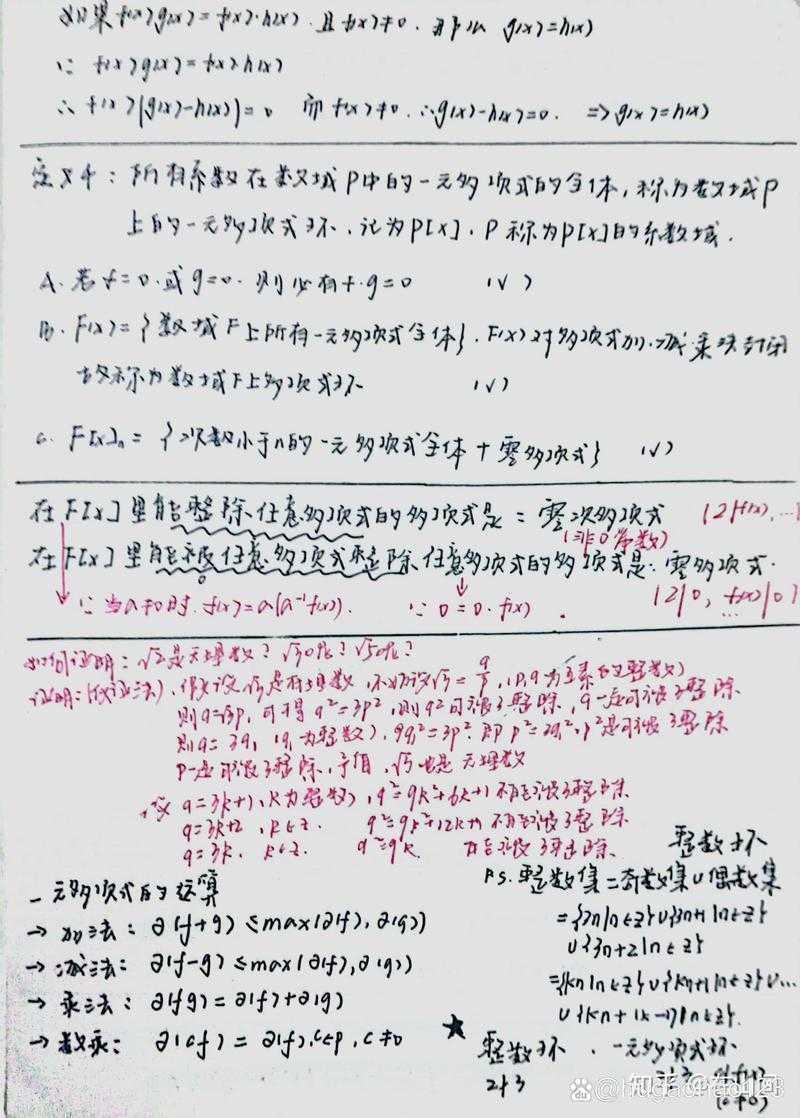 如果f(x)g(x)=f(x)·h(x).且f(x)≠0.那么 g(x)=h(x)
∵ f(x)g(x)=f(x)h(x)
∴ f(x)[g(x)-h(x)]=0 而f(x)≠0.∴g(x)-h(x)=0. ⇒g(x)=h(x)
定义4：所有系数在数域P中的一元多项式的全体，称为数域P
上的一元多项式环，记为P[x]，P称为P[x]的系数域．
A. 若f=0.或g=0.则必有f·g=0 (√)
B. F(x)={数域F上所有一元多项式全体}，F(x)对多项式加.减乘法封闭
故称为数域F上多项式环 (√)
C. F[x]ₙ={次数小于n的一元多项式全体+零多项式} (√)
在F[x]里能整除任意多项式的多项式是：零次多项式 (2|f(x),…
(非0常数)
在F[x]里能被任意多项式整除任意多项式的多项式是：零多项式.
∵当a≠0时.f(x)=a(a⁻¹f(x)). ∵0=0·f(x). (2|0, f(x)|0)
如何证明：√2是无理数？√3呢？√5呢？
证明:(反证法)，假设√3是有理数，不妨设√3=q/p，(p,q为互素的整数)
则q=√3p，可得q²=3p²，则q²可被3整除，q一定可被3整除
则q=3q₁ (q₁为整数)，9q₁²=3p².即p²=3q₁²，p²是可被3整除
p一定可被3整除，矛盾，√3也是无理数
设 q=3k+1，k为整数，q²=9k²+6k+1不能被3整除
q=3k+2，k∈z. q²=9k²+12k+4 不能被3整除
q=3k. k∈z. q²=9k². 能被3整除.
整数环
PS.整数集=奇数集∪偶数集
={2n|n∈z}∪{3n+1|n∈z}
∪{3n+2|n∈z}
={kn|n∈z}∪{kn+1|n∈z}∪…
∪{kn+(k-1)|n∈z}.
一元多项式的运算
→加法：∂(f+g)≤max(∂(f),∂(g))
→减法：∂(f-g)≤max(∂(f),∂(g))
→乘法：∂(fg)=∂(f)+∂(g)
→数乘：∂(cf)=∂(f),c∈p,c≠0
★ 整数环．一元多项式环
2∤3
(c≠0)
知乎